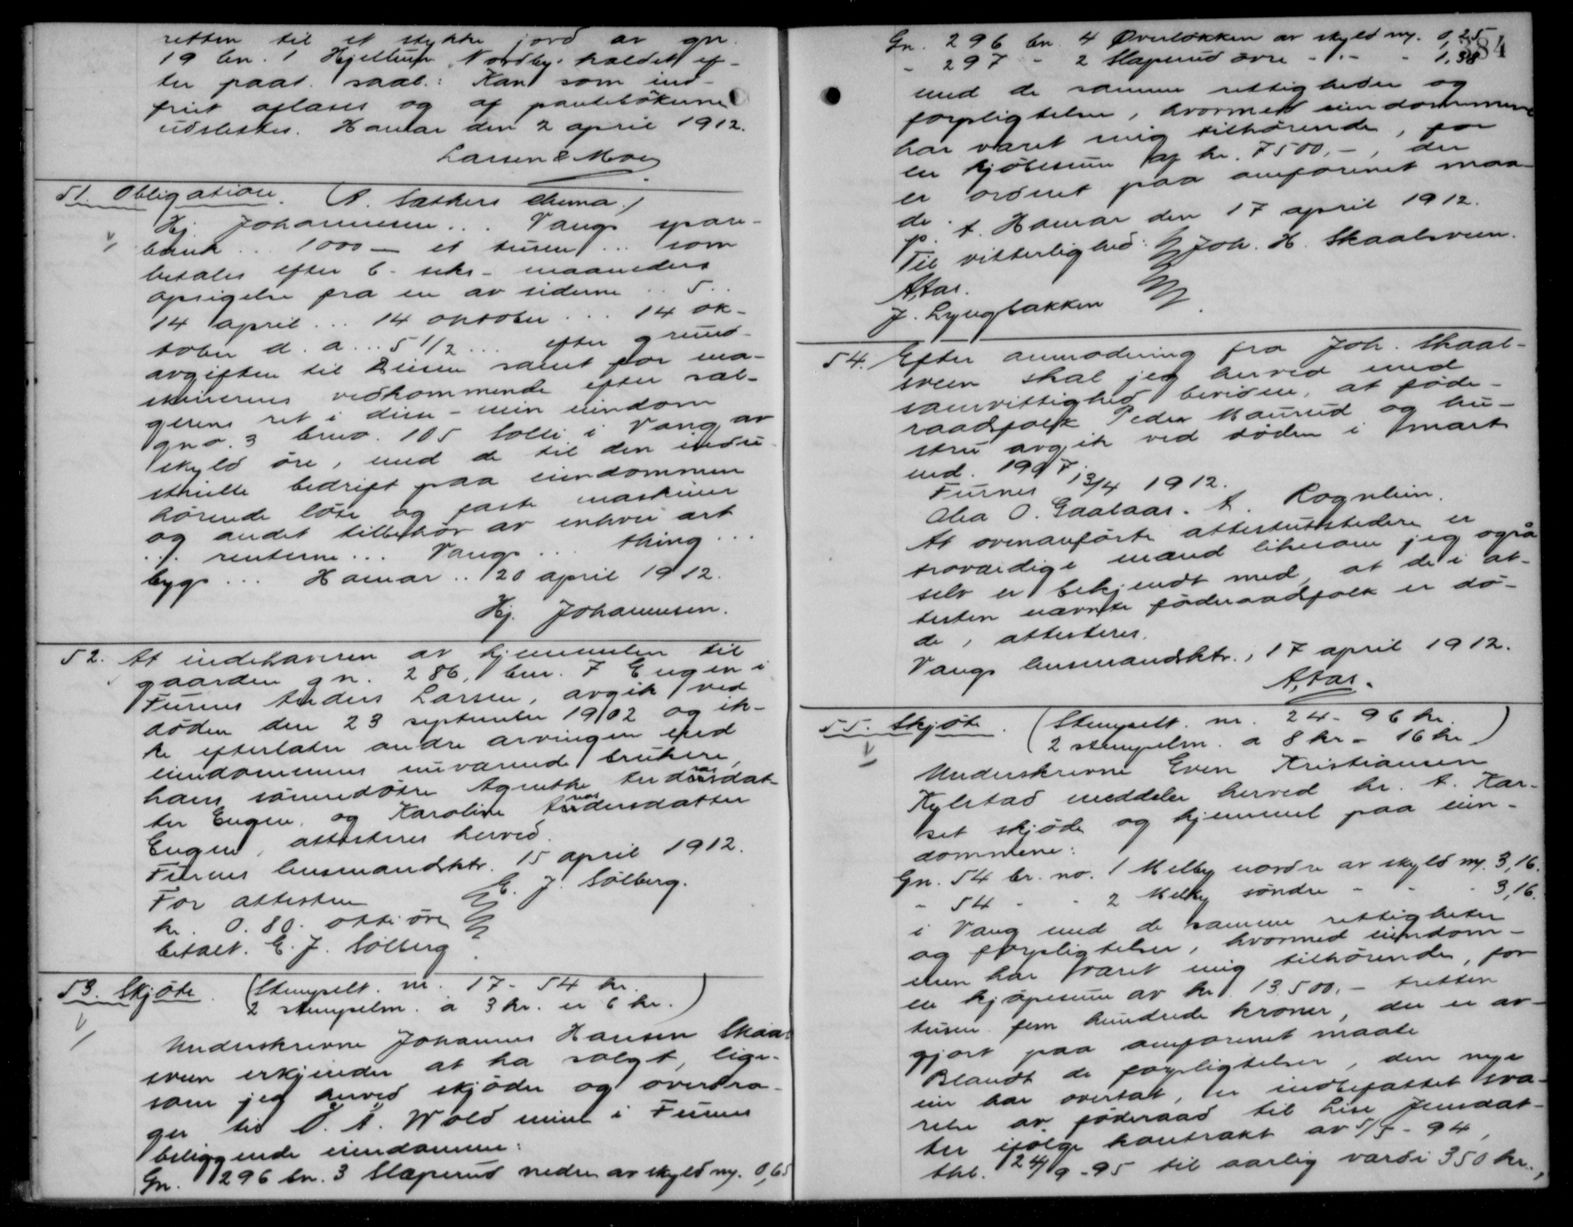 retten til et stykke jord av gn.
19 bn. 1 Hjellum Nordby. haldet ef-
ter paat. saal: Kan som ind-
friet aflases og af pantebökerne
udslettes. Hamar den 2 april 1912.
Larsen & Moe
51. Obligation. (N. Sæthers skema.)
Hj. Johannesen... Vangs spare-
bank... 1000 — et tusen... som
betales efter 6 - seks - maaneders
opsigelse fra en av siderne .. 5..
14 april... 14 oktober... 14 ok-
tober d. a... 5 1/2... efter grund-
avgiften til Deisen samt for ma-
skinernes vedkommende efter sæl-
gerens ret i disse - min eiendom
gno. 3 brno. 105 i Vang av
skyld öre, med de til den indu-
strielle bedrift paa eiendommen
hörende löse og faste maskiner
og andet tilbehör av enhver art
... renterne... Vangs... thing...
bygs... Hamar.. 20 april 1912.
Hj. Johannesen.
52. At indehaveren av hjemmelen til
gaarden gn. 286, bn. 7 Engen i
Furnes Anders Larsen, avgik ved
döden den 23 september 1902 og ik-
ke efterlater andre arvinger end
eiendommens nuværende brukere,
hans sönnedötre Agnethe Andersdat-
ter Engen og Karoline Andersdatter
Engen, attesteres herved.
Furnes lensmandsktr. 15 april 1912.
E. J. Sölberg.
For attesten
kr. 0.80 otti öre
betalt. E. J. Sölberg
53. Skjöte. (Stempelt. nr. 17 - 54 kr.
2 stempelm. á 3 kr. er 6 kr.)
Underskrevne Johannes Hansen Skaal-
sveen erkjender at ha solgt, lige-
som jeg herved skjöder og overdra-
ger til O. A. Wold mine i Furnes
beliggende eiendomme:
Gn. 296 bn. 3 Slæperud nedre av skyld my. 0,65
384
Gn. 296 bn. 4 Överlökken av skyld my. 0,25
- 297 - 2 Slaperud övre - . - - 1,38
med de samme rettigheder og
forpligtelser, hvormed eiendommene
har været mig tilhörende, for
en kjöbesum af kr. 7500.-, der
er ordnet paa omforenet maa-
de.
p. t. Hamar den 17 april 1912.
Til vitterlighed: Joh. H. Skaalsveen.
A, Aas.
J. Lyngbakken
54. Efter anmodning fra Joh. Skaal-
sveen skal jeg herved med
samvittighed bevidne, at föde-
raadsfolk Peder Maurud og hu-
stru avgik ved döden i mart
md. 1907.
Furnes 13/4 1912.
Olea O. Gaalaas. A. Rognlien.
At ovenanförte attestutstedere er
troværdige mænd likesom jeg også
selv er bekjendt med, at de i at-
testen nævnte föderaadsfolk er dö-
de, attesteres.
Vangs lensmandsktr., 17 april 1912.
A, Aas.
55. Skjöte. (Stempelt. nr. 24 - 96 kr.
2 stempelm. a 8 kr - 16 kr.)
Underskrevne Even Kristiansen
Kylstad meddeler herved hr. A. Kar-
set skjöde og hjemmel paa eien-
dommene:
Gn. 54 br. no. 1 Melby nordre av skyld my. 3,16.
- 54 - - 2 Melby söndre - - - 3,16.
i Vang med de samme rettigheter
og forpligtelser, hvormed eiendom-
men har været mig tilhörende, for
en kjöpesum av kr. 13.500.- tretten
tusen fem hundrede kroner, der er av-
gjort paa omforenet maate
Blandt de forpligtelser, den nye
eier har overtat, er indbefattet sva-
relse av föderaad til Lise Jensdat-
ter ifölge kontrakt av 5/7 - 94,
thl. 24/9 - 95 til aarlig værdi 350 kr.,